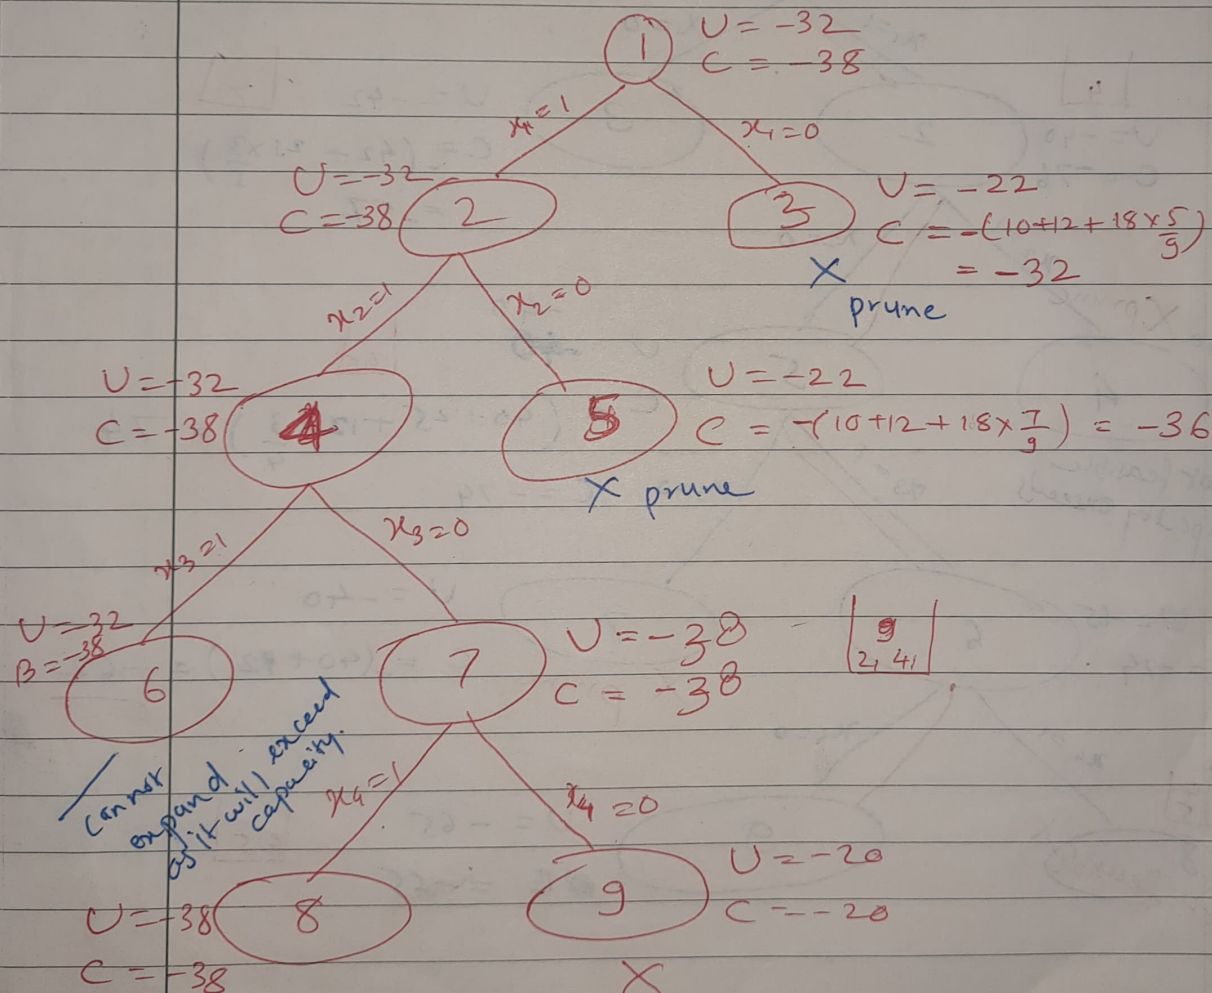 1
U = -32
C = -38
x₁=1
x₁=0
U = -32
C = -38
2
3
U = -22
C = -(10+12+18×5/9)
= -32
X
prune
x₂=1
x₂=0
U = -32
C = -38
4
5
U = -22
C = -(10+12+18×7/9) = -36
X prune
x₃=1
x₃=0
U = -32
B = -38
6
7
U = -38
C = -38
9
2, 4,
cannot
expand
as it will exceed
capacity.
x₄=1
x₄=0
U = -38
C = -38
8
9
U = -20
C = -20
X